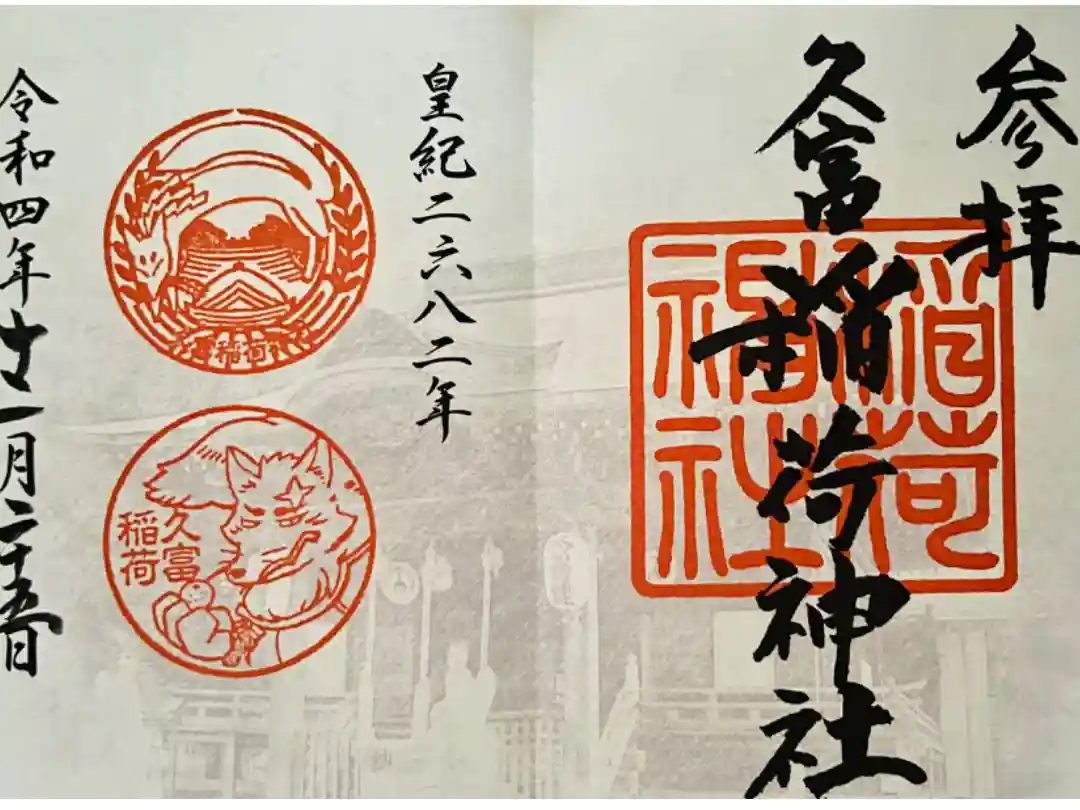 参拝
久富稲荷神社
稲荷
神社
皇紀二六八二年
久富稲荷神社
久富
稲荷
令和四年十一月二十五日